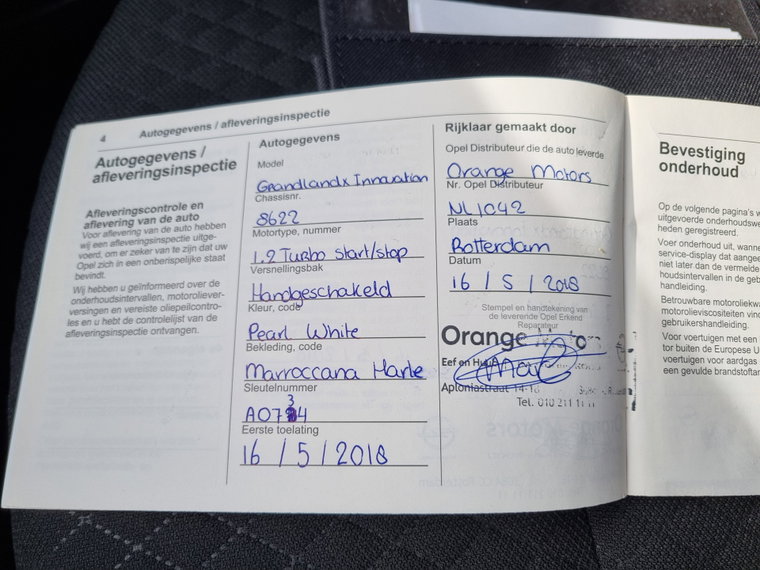 4 Autogegevens / afleveringsinspectie
Autogegevens /
afleveringsinspectie
Afleveringscontrole en
aflevering van de auto
Voor aflevering van de auto hebben
wij een afleveringsinspectie uitge-
voerd, om er zeker van te zijn dat uw
Opel zich in een onberispelijke staat
bevindt.
Wij hebben u geïnformeerd over de
onderhoudsintervallen, motoroliever-
versingen en vereiste oliepeilcontro-
les en u hebt de controlelijst van de
afleveringsinspectie ontvangen.
Autogegevens
Model
Grandlandx Innovation
Chassisnr.
8622
Motortype, nummer
1.2 Turbo Start/stop
Versnellingsbak
Handgeschakeld
Kleur, code
Pearl White
Bekleding, code
Marroccana Harle
Sleutelnummer
A0734
Eerste toelating
16 / 5 / 2018
Rijklaar gemaakt door
Opel Distributeur die de auto leverde
Orange Motors
Nr. Opel Distributeur
NL1042
Plaats
Rotterdam
Datum
16 / 5 / 2018
Stempel en handtekening van
de leverende Opel Erkend
Reparateur
Orange
Eef en
Aploniastraat 14-16
Tel. 010 211 11 11
Bevestiging
onderhoud
Op de volgende pagina's w
uitgevoerde onderhoudswe
heden geregistreerd.
Voer onderhoud uit, wanne
service-display dat aangee
niet later dan de vermelde
houdsintervallen in de geb
handleiding.
Betrouwbare motoroliekwa
motorolieviscositeiten vind
gebruikershandleiding.
Voor voertuigen met een
tor buiten de Europese U
voertuigen voor aardgas
een gevulde brandstoftan